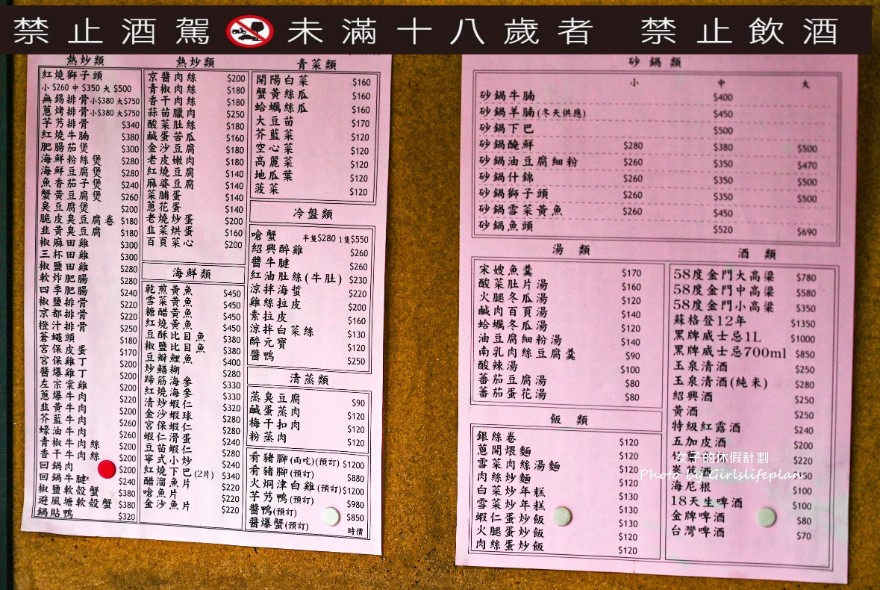 禁止酒駕 未滿十八歲者 禁止飲酒
熱炒類
紅燒獅子頭
小$260中$350大$500
無錫排骨小$380大$750
蔥烤排骨小$380大$750
芋艿排骨 $340
紅燒牛腩 $380
肥腸茄煲 $300
海鮮粉絲煲 $280
海鮮豆腐煲 $280
魚香茄子煲 $240
蟹黃豆腐煲 $260
臭豆腐煲 $200
脆皮臭豆腐卷 $180
韭黃臭豆腐 $180
椒麻田雞 $300
三杯田雞 $300
椒鹽田雞 $280
軟炸肥腸 $280
四季肥腸 $240
椒鹽排骨 $220
京都排骨 $220
橙汁排骨 $250
蒼蠅頭 $180
宮保皮蛋 $170
宮保雞丁 $200
醬爆雞丁 $200
左宗棠雞 $200
蔥爆牛肉 $200
韭黃牛肉 $200
芥藍牛肉 $200
蠔油牛肉 $200
青椒牛肉絲 $200
香干牛肉絲 $200
回鍋肉 $200
回鍋牛腱 $240
椒鹽軟殼蟹 $380
避風塘軟殼蟹 $380
鍋貼鴨 $320
熱炒類
京醬肉絲 $200
青椒肉絲 $180
香干肉絲 $180
蒜苗臘肉 $250
酸菜肚絲 $180
鹹蛋苦瓜 $160
金沙豆腐 $180
老皮嫩肉 $180
紅燒豆腐 $140
麻婆豆腐 $140
菜脯蛋 $140
蔥花蛋 $140
老燒炒蛋 $200
韭菜烘蛋 $160
百頁菜心 $200
海鮮類
乾煎黃魚 $450
雪菜黃魚 $450
糖醋黃魚 $450
紅燒黃魚 $450
豆酥比目魚 $380
椒鹽比目魚 $380
豆瓣鯉魚 $400
炒鱔糊 $280
蹄筋海參 $330
紅燒海參 $330
清炒蝦仁 $320
金沙蝦球 $280
宮保蝦仁 $280
蝦仁滑蛋 $240
豆苗蝦仁 $280
寧式小炒 $240
紅燒下巴(2片) $340
醋溜魚片 $220
嗆魚片 $220
金沙魚片 $220
青菜類
開陽白菜 $160
蟹黃絲瓜 $160
蛤蠣絲瓜 $160
大豆苗 $170
芥藍菜 $120
空心菜 $120
高麗菜 $120
地瓜葉 $120
菠菜 $120
冷盤類
嗆蟹 半隻$280 1隻$550
紹興醉雞 $260
醬牛腱 $260
紅油肚絲(牛肚) $230
涼拌海蜇 $220
雞絲拉皮 $200
素拉皮 $160
涼拌白菜絲 $130
醉元寶 $120
醬鴨 $250
清蒸類
蒸臭豆腐 $90
鹹蛋蒸肉 $120
梅干扣肉 $120
粉蒸肉 $120
肴豬腳(兩吃)(預訂) $1200
肴豬腳(預訂) $880
火炯津白雞(預訂) $1200
芋艿鴨(預訂) $980
醬鴨(預訂) $850
醬爆蟹(預訂) 時價
砂鍋類
小 中 大
砂鍋牛腩 $400
砂鍋羊腩(冬天供應) $450
砂鍋下巴 $500
砂鍋醃鮮 $280 $380 $500
砂鍋油豆腐細粉 $260 $350 $470
砂鍋什錦 $260 $350 $500
砂鍋獅子頭 $260 $350 $500
砂鍋雪菜黃魚 $260 $450
砂鍋魚頭 $520 $690
湯類
宋嫂魚羹 $170
酸菜肚片湯 $160
火腿冬瓜湯 $120
鹹肉百頁湯 $140
蛤蠣冬瓜湯 $120
油豆腐細粉湯 $140
南乳肉絲豆腐羹 $90
酸辣湯 $100
蕃茄豆腐湯 $80
蕃茄蛋花湯 $80
飯類
銀絲卷 $120
蔥開煨麵 $120
雪菜肉絲湯麵 $120
肉絲炒麵 $120
白菜炒年糕 $130
雪菜炒年糕 $130
蝦仁蛋炒飯 $130
火腿蛋炒飯 $120
肉絲蛋炒飯 $120
酒類
58度金門大高粱 $780
58度金門中高粱 $580
58度金門小高粱 $350
蘇格登12年 $1350
黑牌威士忌1L $1000
黑牌威士忌700ml $850
玉泉清酒 $250
玉泉清酒(純米) $280
紹興酒 $250
黃酒 $250
特級紅露酒 $240
五加皮酒 $200
竹葉青酒 $200
海尼根 $100
18天生啤酒 $100
金牌啤酒 $80
台灣啤酒 $70
女子的休假計劃
Photo by Girlslifeplan